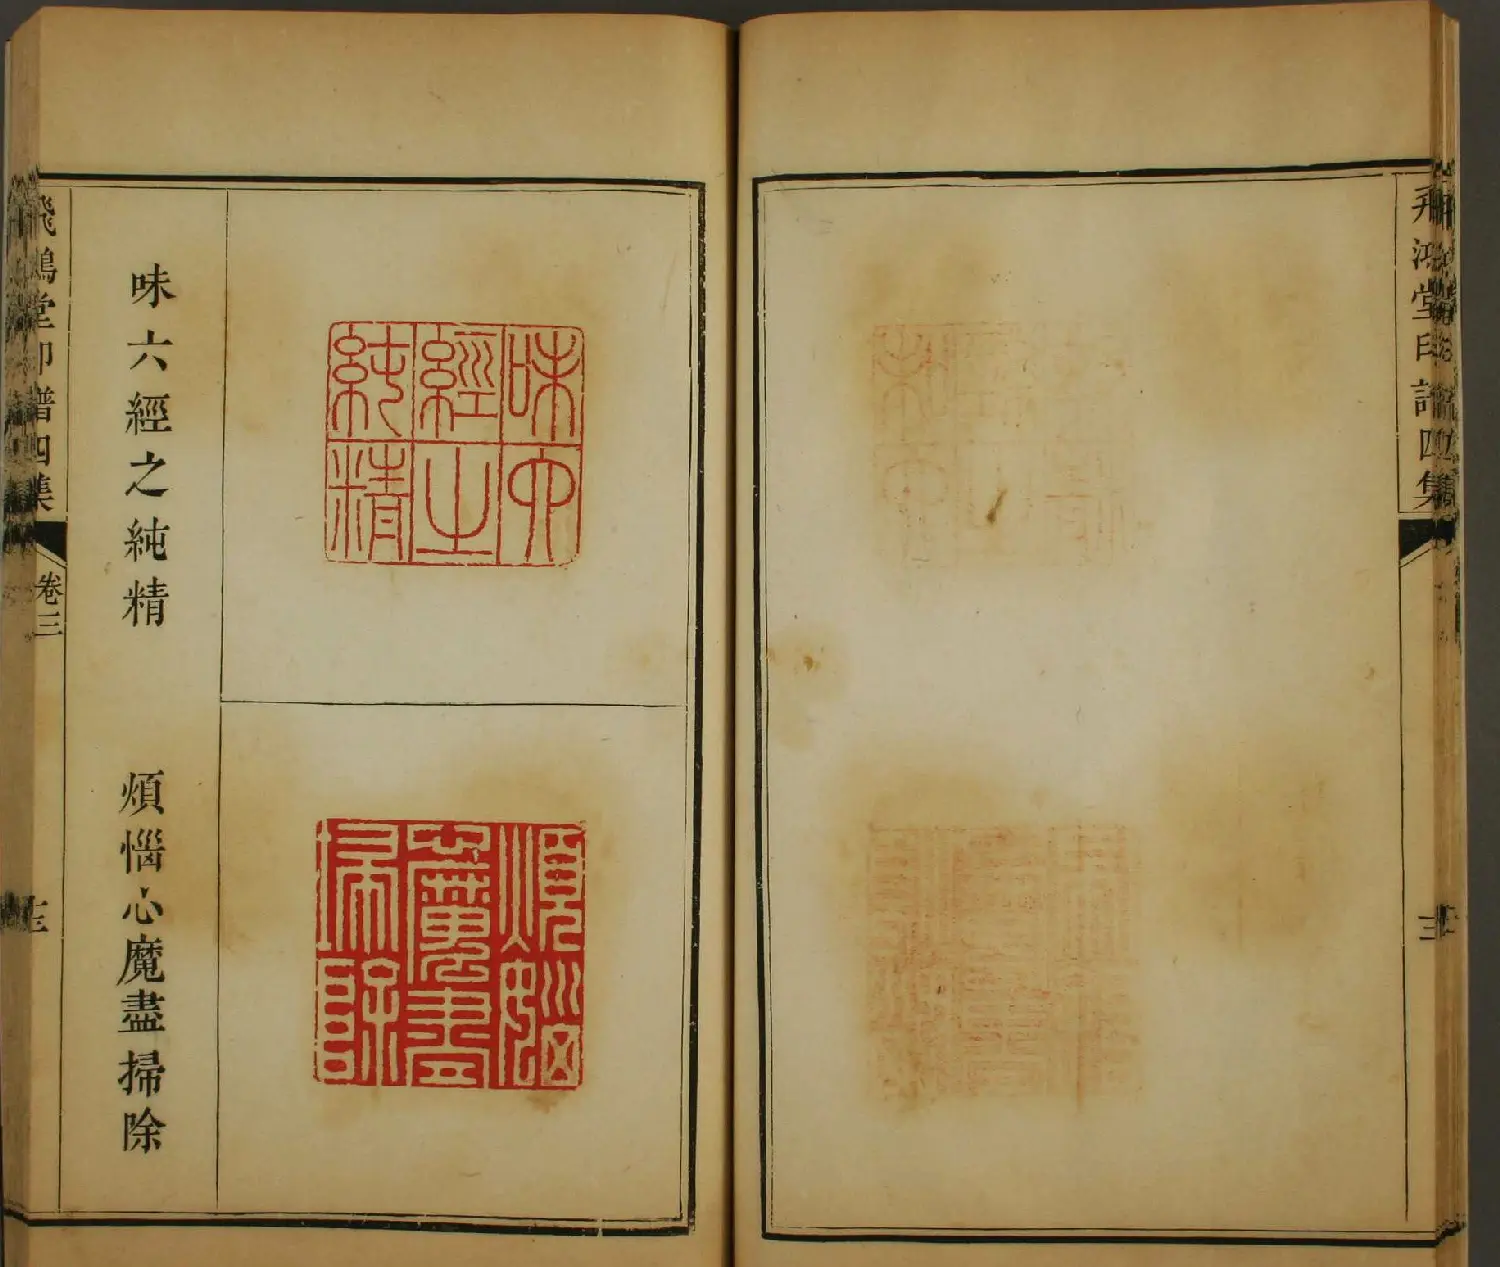 飛鴻堂印譜四集
味經純
六之精
味六經之純精
煩惱心魔盡掃除
煩惱心魔盡掃除
飛鴻堂印譜四集
卷三